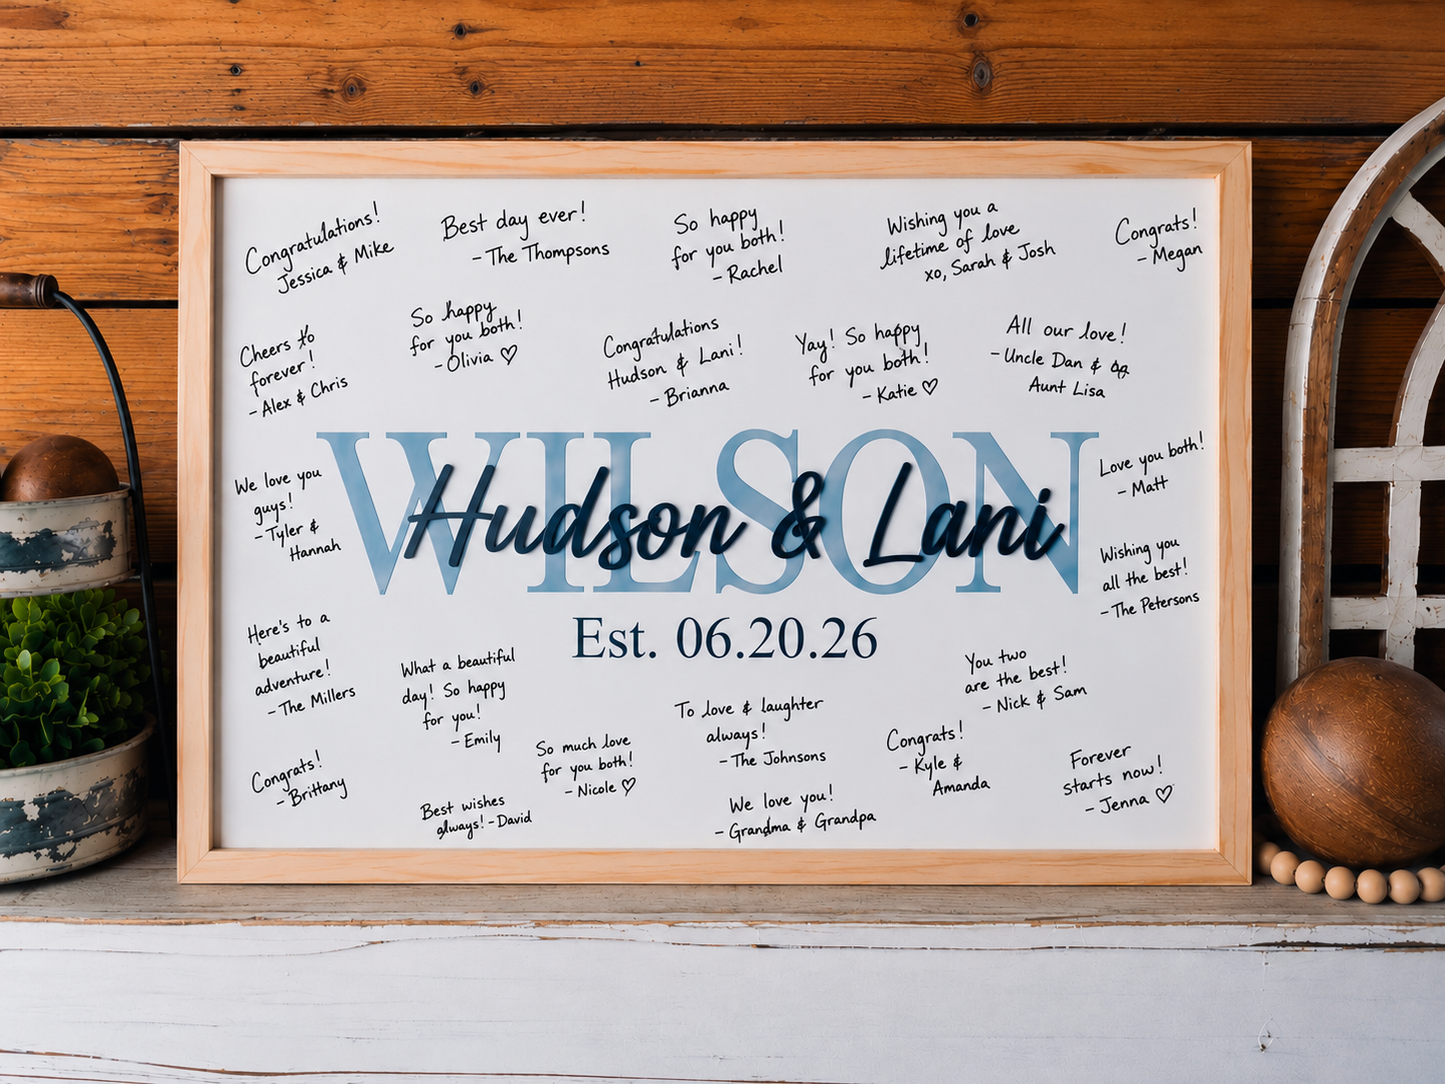 Congratulations!
Jessica & Mike
Best day ever!
- The Thompsons
So happy
for you both!
- Rachel
Wishing you a
lifetime of love
xo, Sarah & Josh
Congrats!
- Megan
Cheers to
forever!
- Alex & Chris
So happy
for you both!
- Olivia ♡
Congratulations
Hudson & Lani!
- Brianna
Yay! So happy
for you both!
- Katie ♡
All our love!
- Uncle Dan &
Aunt Lisa
We love you
guys!
- Tyler &
Hannah
WILSON
Hudson & Lani
Est. 06.20.26
Love you both!
- Matt
Wishing you
all the best!
- The Petersons
Here's to a
beautiful
adventure!
- The Millers
What a beautiful
day! So happy
for you!
- Emily
You two
are the best!
- Nick & Sam
To love & laughter
always!
- The Johnsons
So much love
for you both!
- Nicole ♡
Congrats!
- Kyle &
Amanda
Forever
starts now!
- Jenna ♡
Congrats!
- Brittany
Best wishes
always! - David
We love you!
- Grandma & Grandpa